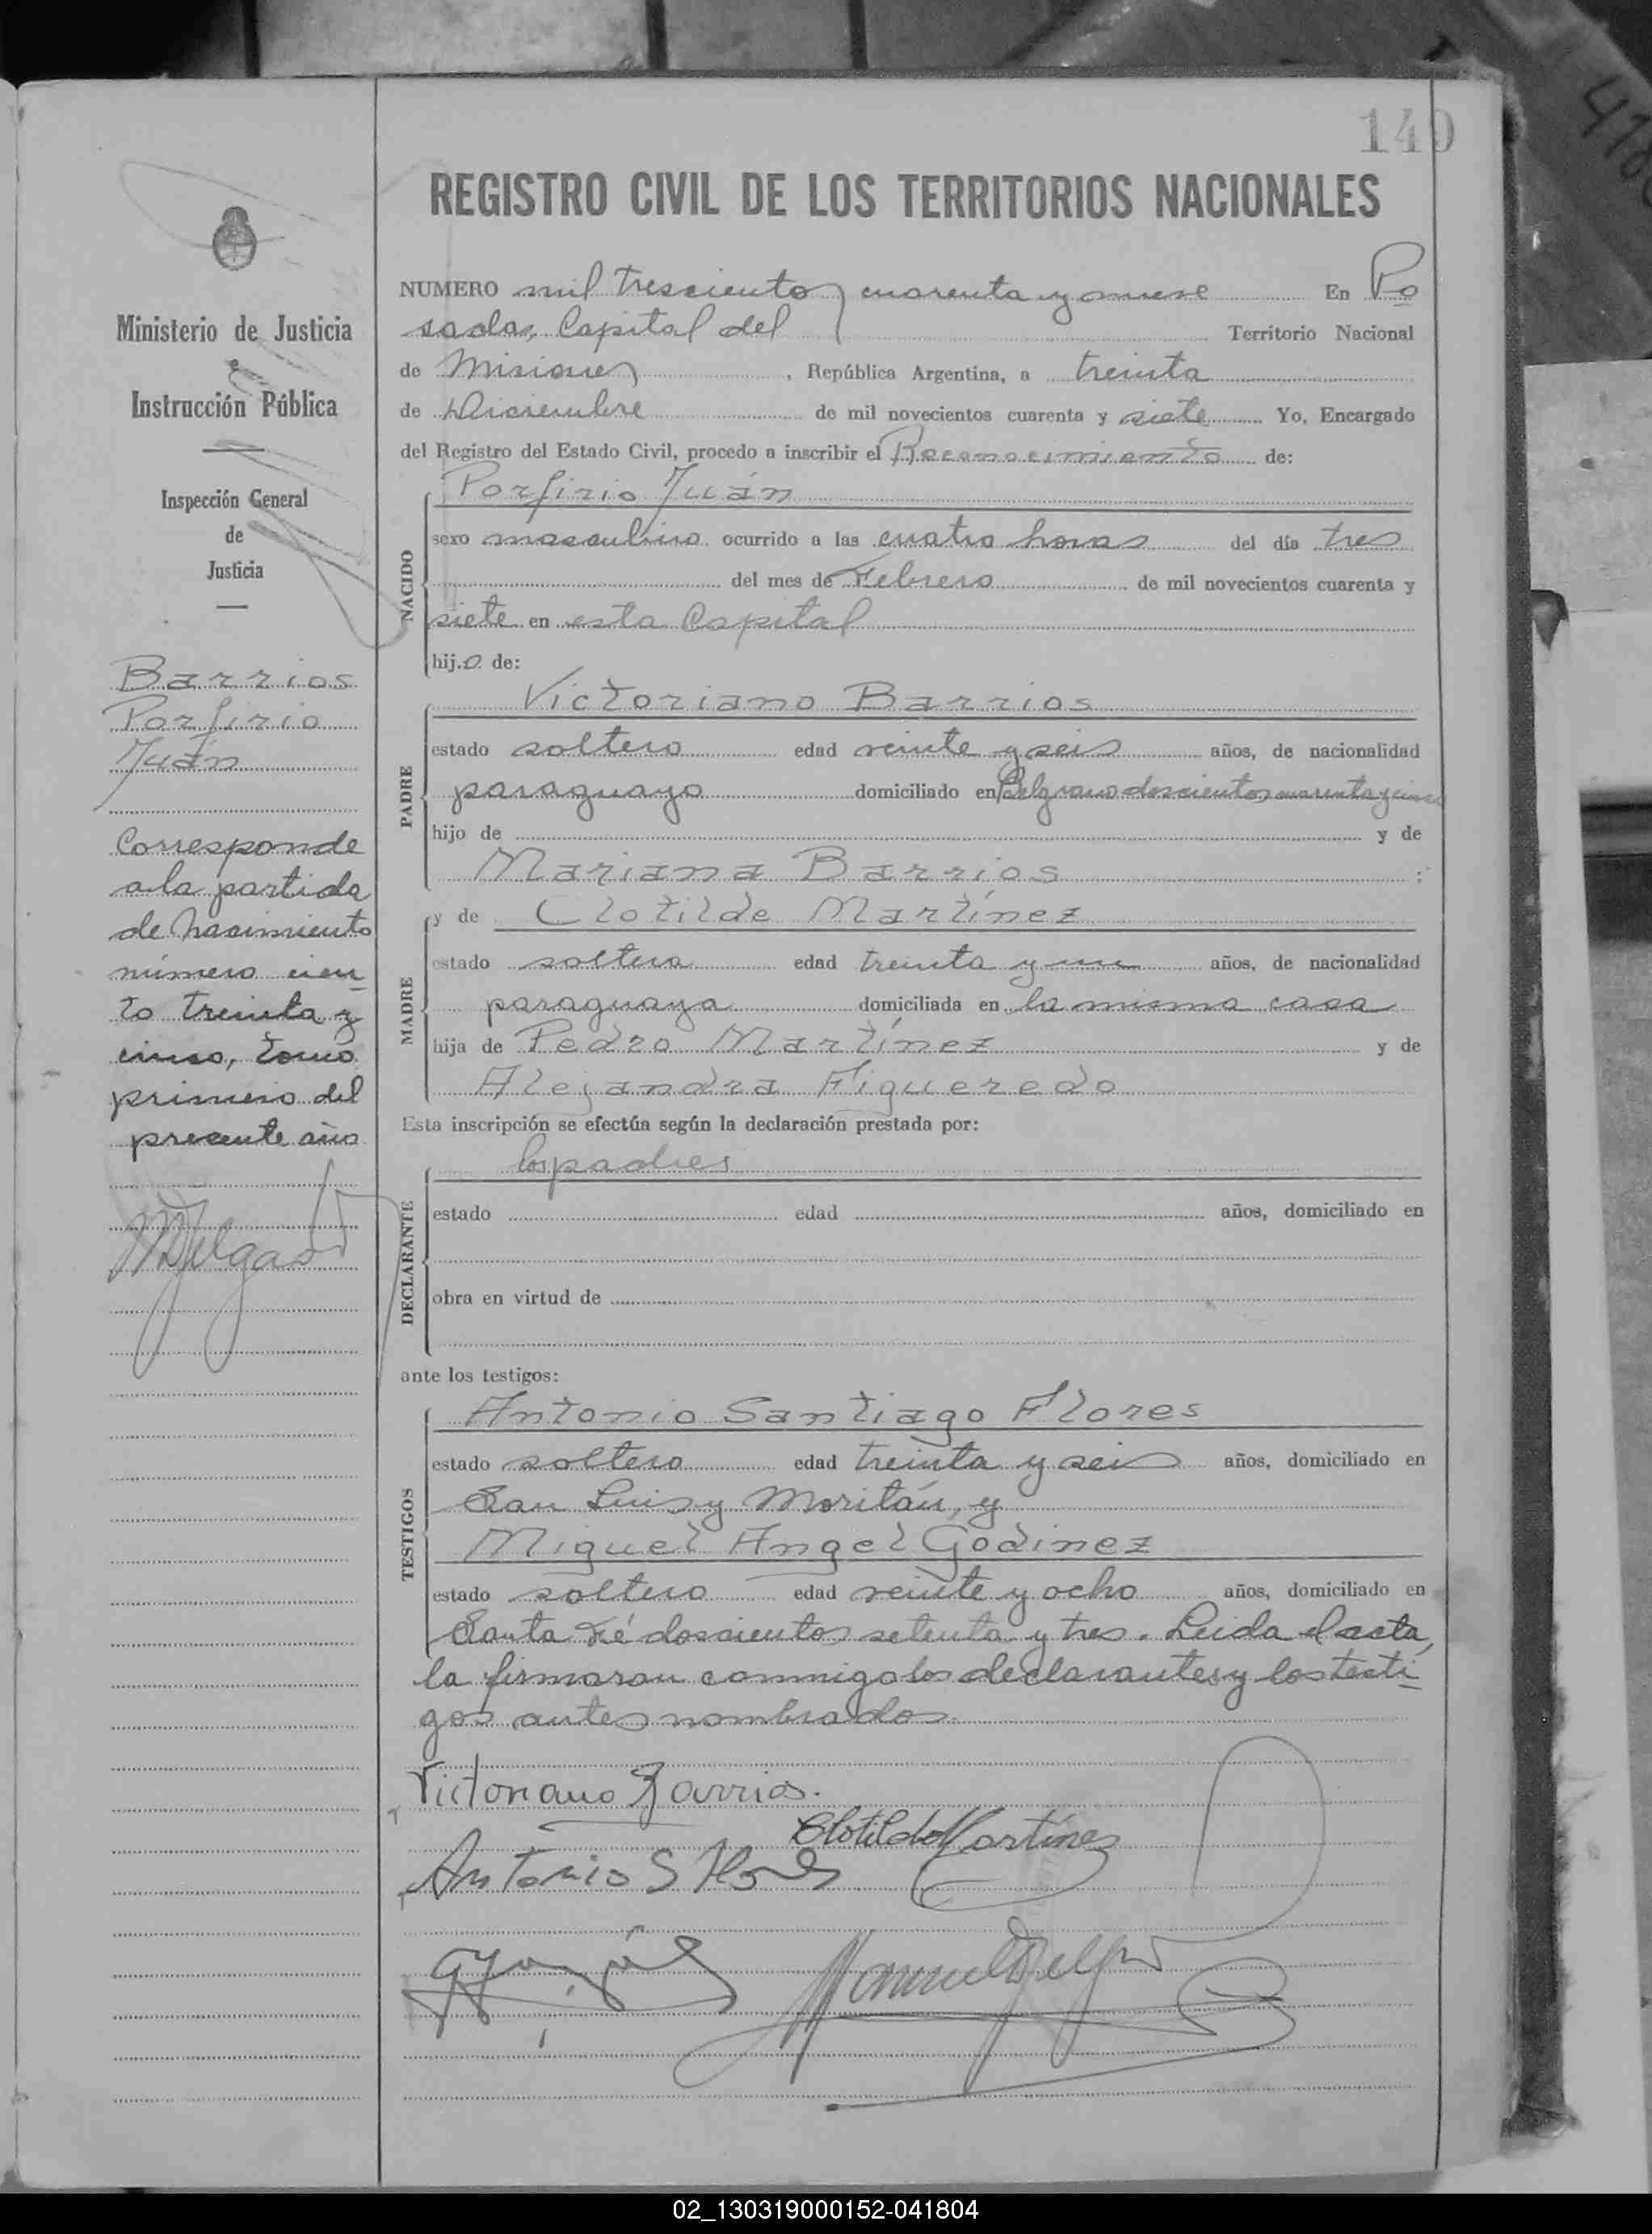 149
REGISTRO CIVIL DE LOS TERRITORIOS NACIONALES
Ministerio de Justicia
e
Instrucción Pública
Inspección General
de
Justicia
Barrios
Porfirio
Juán
Corresponde
a la partida
de Nacimiento
número cien
to treinta y
cinco, tomo
primero del
presente año
MDelgado
NUMERO mil trescientos cuarenta y nueve En Po
sadas, Capital del Territorio Nacional
de Misiones, República Argentina, a treinta
de Diciembre de mil novecientos cuarenta y siete Yo, Encargado
del Registro del Estado Civil, procedo a inscribir el Reconocimiento de:
NACIDO
Porfirio Juán
sexo masculino ocurrido a las cuatro horas del día tres
del mes de Febrero de mil novecientos cuarenta y
siete en esta Capital
hijo de:
PADRE
Victoriano Barrios
estado soltero edad veinte y seis años, de nacionalidad
paraguayo domiciliado en Belgrano doscientos cuarenta y cinco
hijo de y de
Mariana Barrios ;
MADRE
y de Clotilde Martínez
estado soltera edad treinta y un años, de nacionalidad
paraguaya domiciliada en la misma casa
hija de Pedro Martínez y de
Alejandra Figueredo
Esta inscripción se efectúa según la declaración prestada por:
DECLARANTE
los padres
estado edad años, domiciliado en
obra en virtud de
ante los testigos:
TESTIGOS
Antonio Santiago Flores
estado soltero edad treinta y seis años, domiciliado en
San Luis y Moritán, y
Miguel Angel Godinez
estado soltero edad veinte y ocho años, domiciliado en
Santa Fé doscientos setenta y tres. Leida el acta,
la firmaron conmigo los declarantes y los testi
gos antes nombrados.
Victoriano Barrios.
Clotilde Martínez
Antonio S Flores
Manuel Delgado
02_130319000152-041804